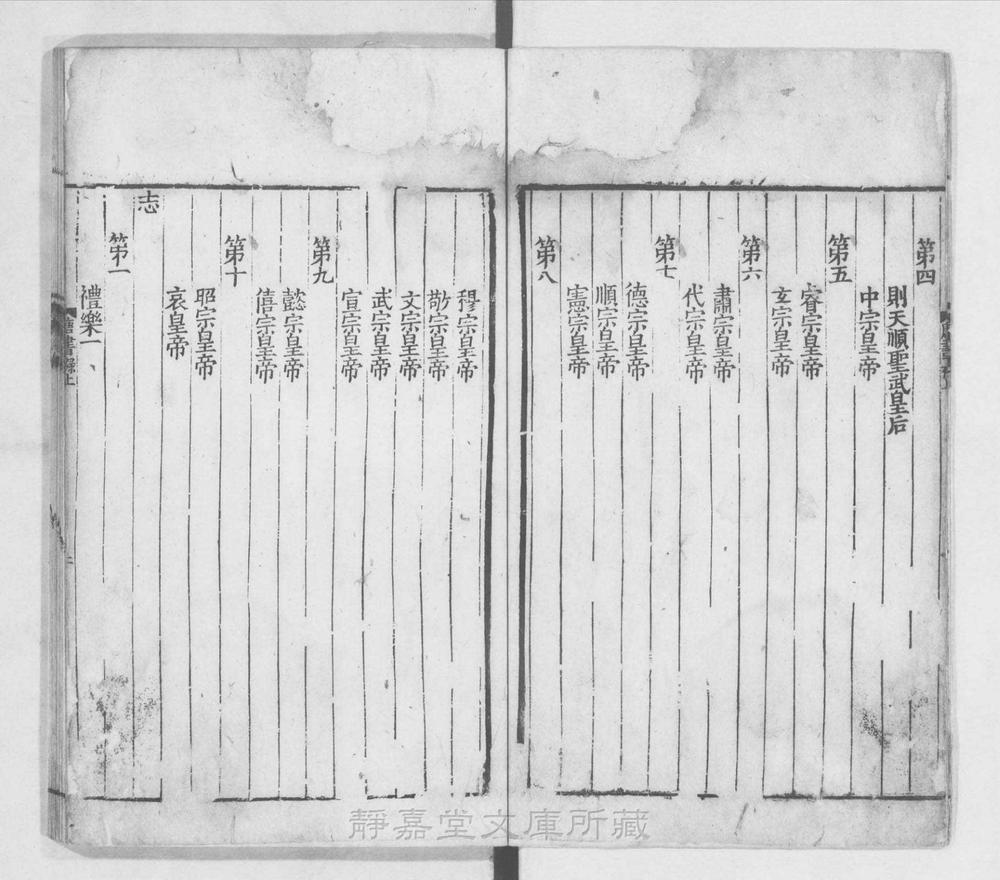 第四
則天順聖武皇后
中宗皇帝
第五
睿宗皇帝
玄宗皇帝
第六
肅宗皇帝
代宗皇帝
第七
德宗皇帝
順宗皇帝
憲宗皇帝
第八
穆宗皇帝
敬宗皇帝
文宗皇帝
武宗皇帝
宣宗皇帝
第九
懿宗皇帝
僖宗皇帝
第十
昭宗皇帝
哀皇帝
志
第一
禮樂一
靜嘉堂文庫所藏